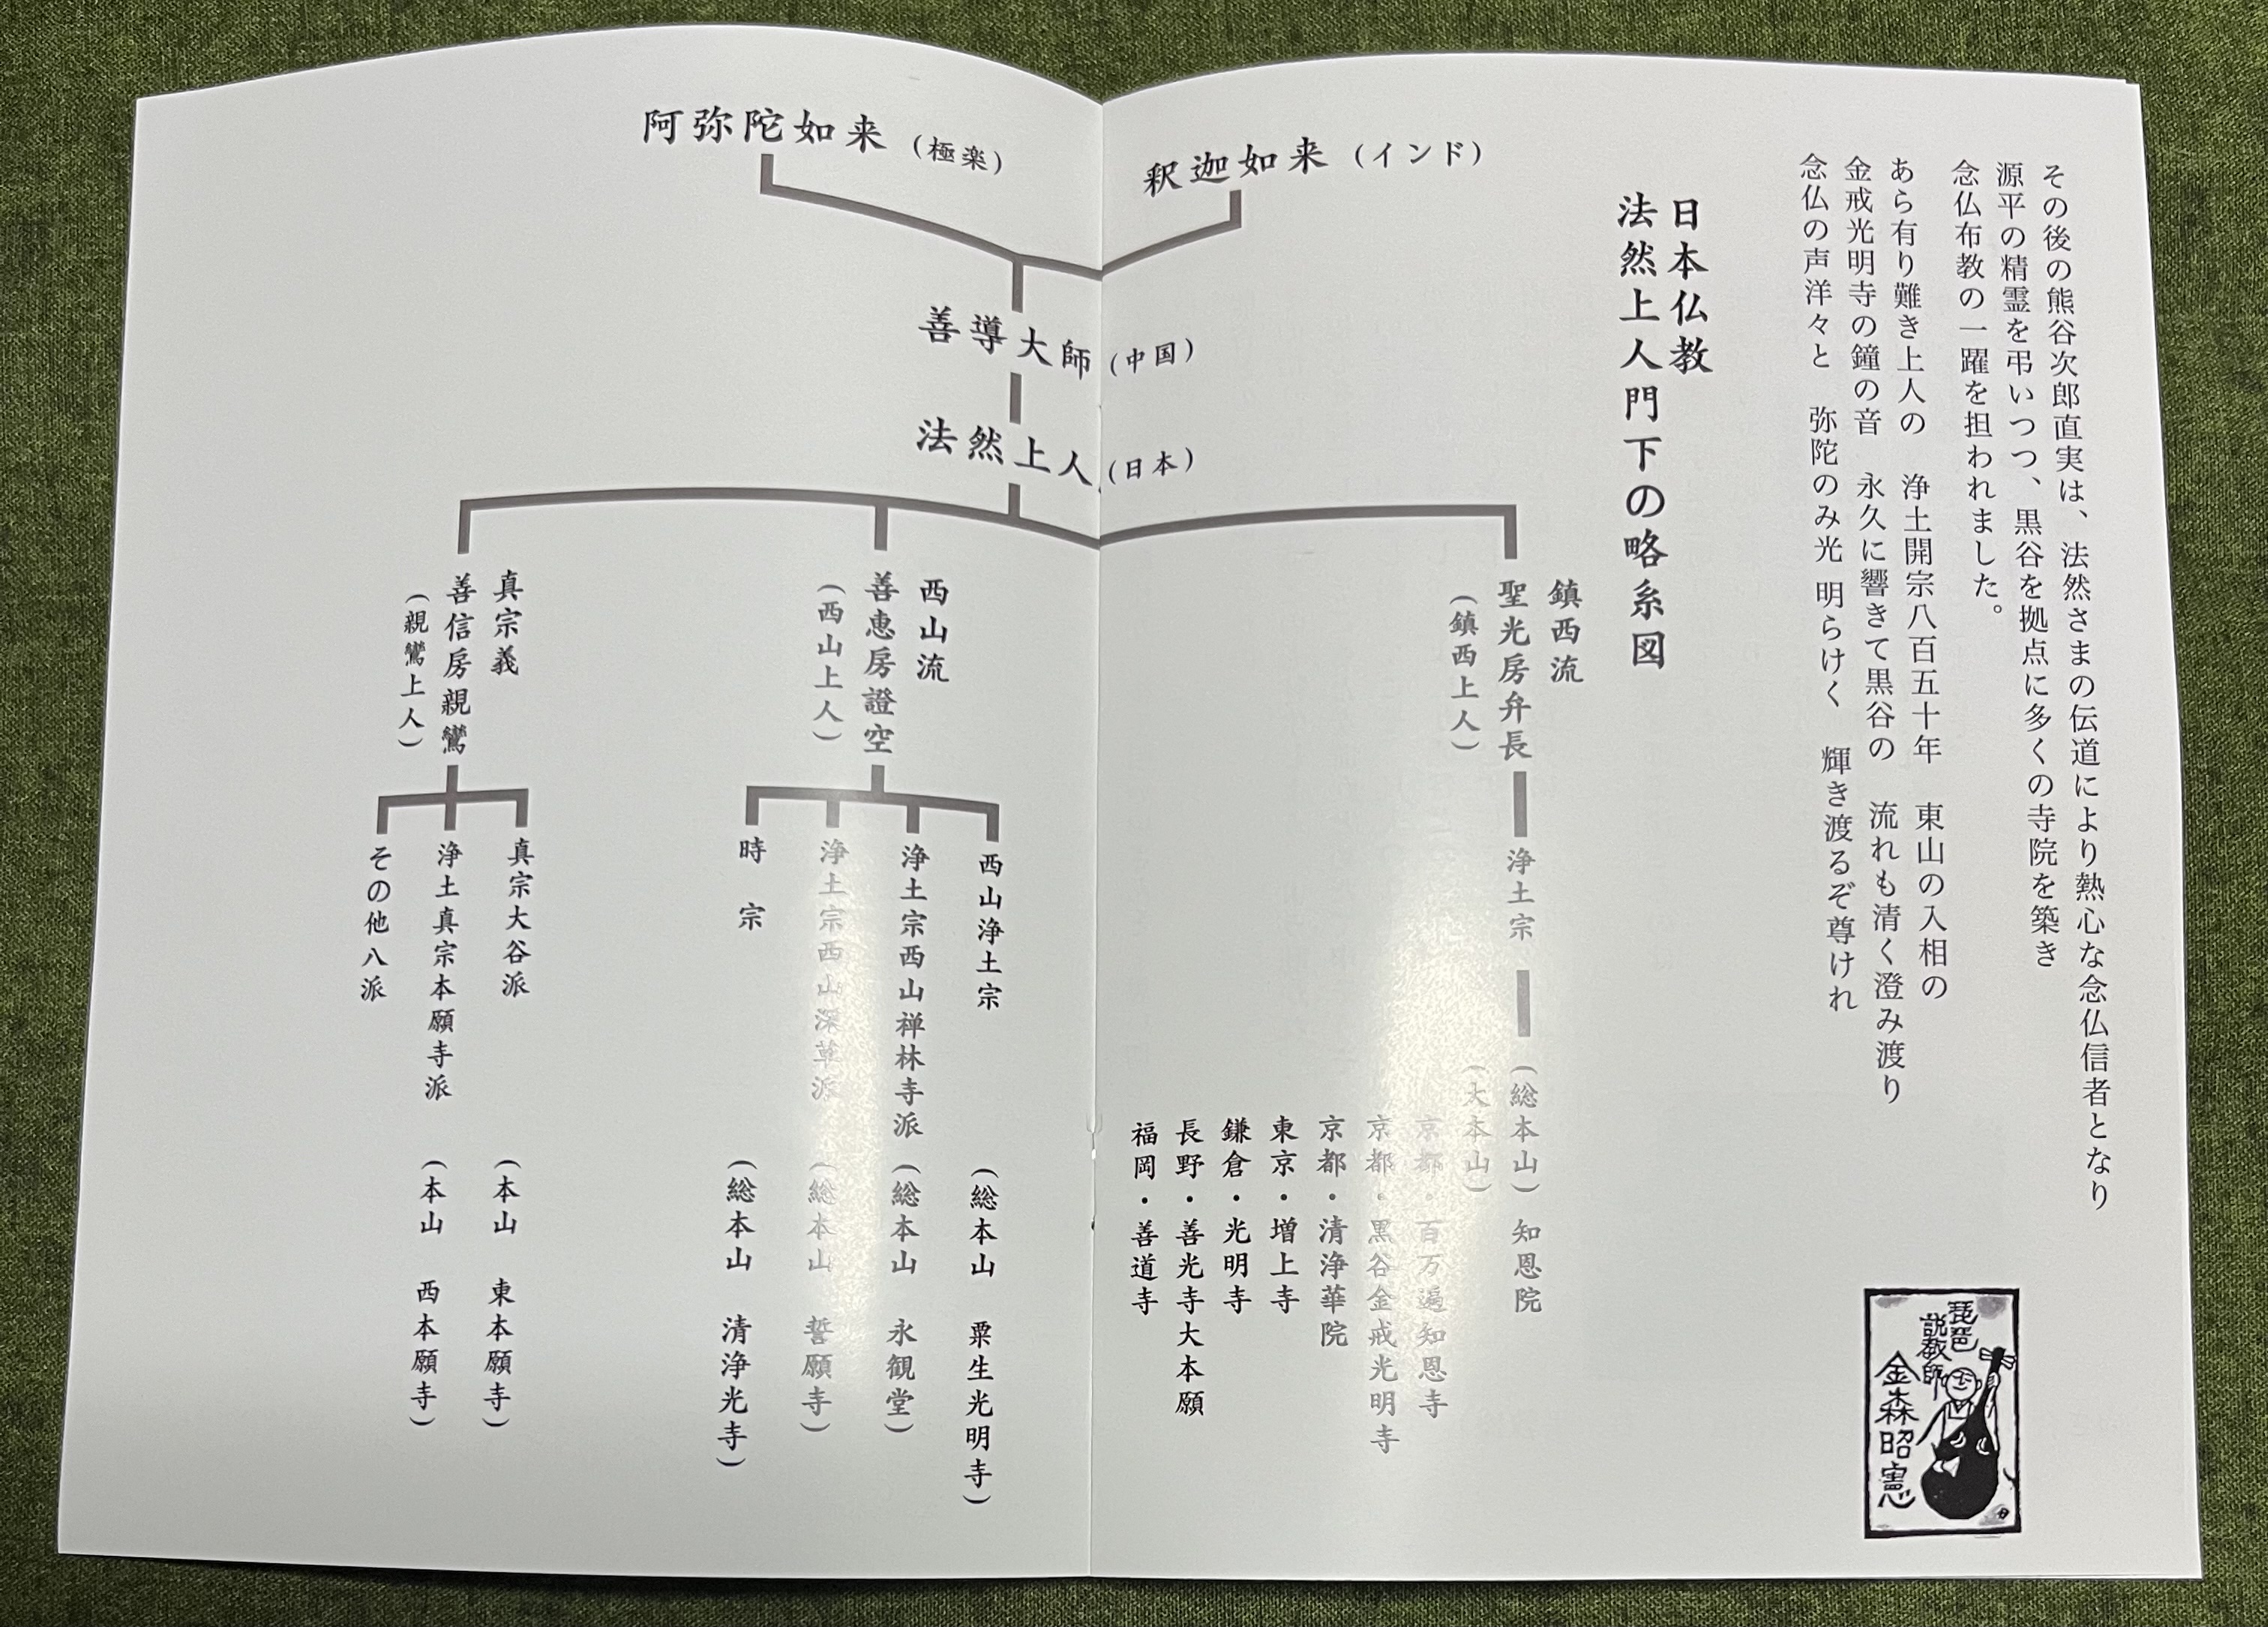 その後の熊谷次郎直実は、法然さまの伝道により熱心な念仏信者となり
源平の精霊を弔いつつ、黒谷を拠点に多くの寺院を築き
念仏布教の一躍を担われました。
あら有り難き上人の　浄土開宗八百五十年　東山の入相の
金戒光明寺の鐘の音　永久に響きて黒谷の　流れも清く澄み渡り
念仏の声洋々と　弥陀のみ光　明らけく　輝き渡るぞ尊けれ
琵琶
説教師
金森昭憲
日本仏教
法然上人門下の略系図
釈迦如来（インド）
阿弥陀如来（極楽）
善導大師（中国）
法然上人（日本）
鎮西流
聖光房弁長
（鎮西上人）
浄土宗
（総本山）知恩院
（大本山）
京都・百万遍知恩寺
京都・黒谷金戒光明寺
京都・清浄華院
東京・増上寺
鎌倉・光明寺
長野・善光寺大本願
福岡・善道寺
西山流
善恵房證空
（西山上人）
西山浄土宗　（総本山　粟生光明寺）
浄土宗西山禅林寺派（総本山　永観堂）
浄土宗西山深草派　（総本山　誓願寺）
時　宗　（総本山　清浄光寺）
真宗義
善信房親鸞
（親鸞上人）
真宗大谷派　（本山　東本願寺）
浄土真宗本願寺派　（本山　西本願寺）
その他八派